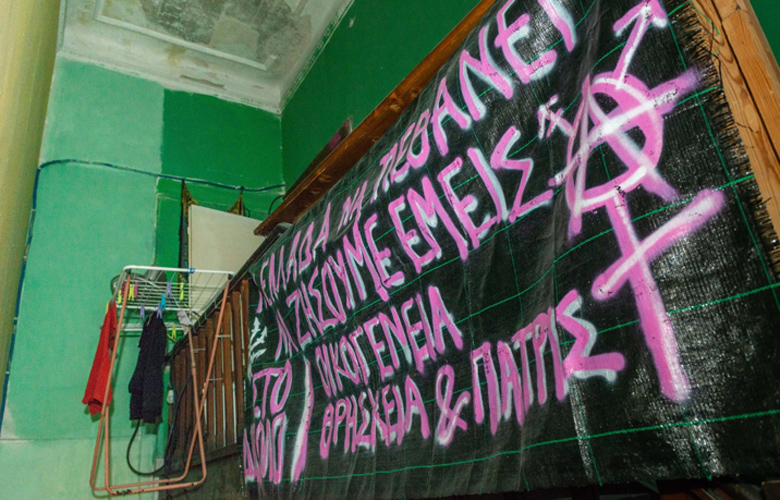 Η ΕΛΛΑΔΑ ΝΑ ΠΕΘΑΝΕΙ
ΝΑ ΖΗΣΟΥΜΕ ΕΜΕΙΣ
ΣΤΟ
ΟΙΚΟΓΕΝΕΙΑ
ΘΡΗΣΚΕΙΑ & ΠΑΤΡΙΣ